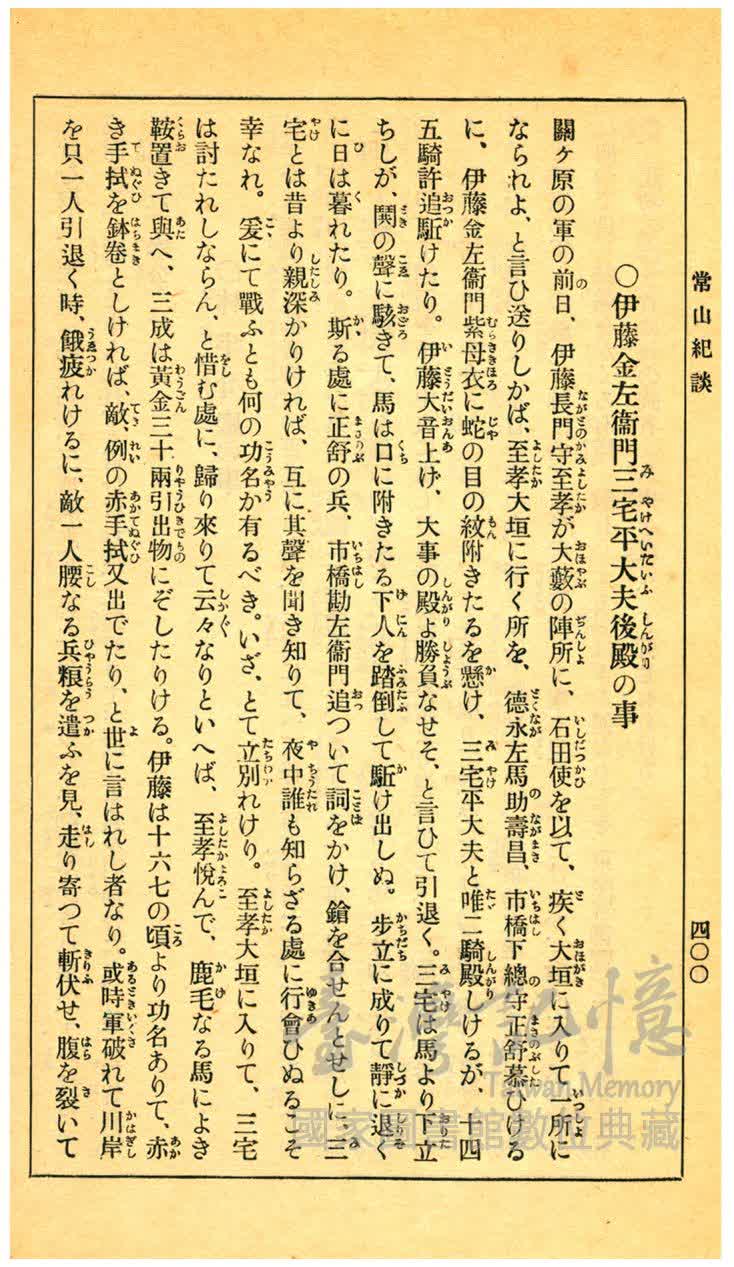 常山紀談
四〇〇
〇伊藤金左衞門三宅平大夫後殿の事
關ヶ原の軍の前日、伊藤長門守至孝が大藪の陣所に、石田使を以て、疾く大垣に入りて一所に
なられよ、と言ひ送りしかば、至孝大垣に行く所を、德永左馬助壽昌、市橋下總守正舒慕ひける
に、伊藤金左衞門紫母衣に蛇の目の紋附きたるを懸け、三宅平大夫と唯二騎殿しけるが、十四
五騎許追駈けたり。伊藤大音上げ、大事の殿よ勝負なせそ、と言ひて引退く。三宅は馬より下立
ちしが、鬨の聲に駭きて、馬は口に附きたる下人を踏倒して駈け出しぬ。步立に成りて靜に退く
に日は暮れたり。斯る處に正舒の兵、市橋勘左衞門追ついて詞をかけ、鎗を合せんとせしに、三
宅とは昔より親深かりければ、互に其聲を聞き知りて、夜中誰も知らざる處に行會ひぬるこそ
幸なれ。爰にて戰ふとも何の功名か有るべき。いざ、とて立別れけり。至孝大垣に入りて、三宅
は討たれしならん、と惜む處に、歸り來りて云々なりといへば、至孝悅んで、鹿毛なる馬によき
鞍置きて與へ、三成は黃金三十兩引出物にぞしたりける。伊藤は十六七の頃より功名ありて、赤
き手拭を鉢卷としければ、敵、例の赤手拭又出でたり、と世に言はれし者なり。或時軍破れて川岸
を只一人引退く時、餓疲れけるに、敵一人腰なる兵粮を遣ふを見、走り寄つて斬伏せ、腹を裂いて
臺灣記憶
Taiwan Memory
國家圖書館數位典藏